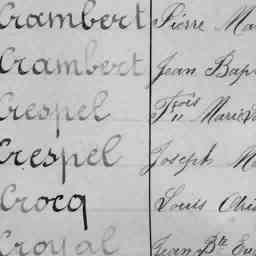 Crambert Pierre Ma
Crambert Jean Bap
Crespel Fçois Marie
Crespel Joseph M
Crocq Louis
Croyal Jean Bte Eu